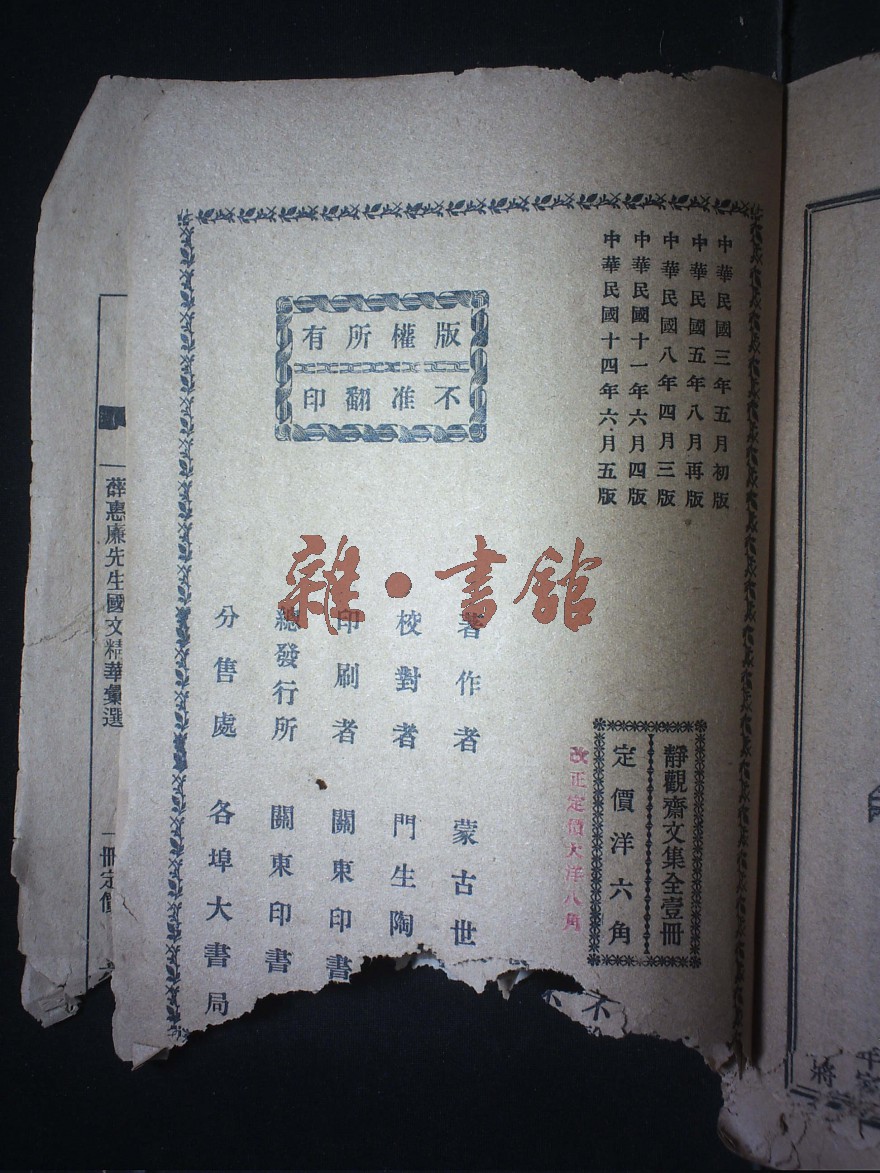 中華民國三年五月初版
中華民國五年八月再版
中華民國八年四月三版
中華民國十一年六月四版
中華民國十四年六月五版
靜觀齋文集全壹冊
定價洋六角
改正定價大洋八角
版權所有
不准翻印
著作者 蒙古世
校對者 門生陶
印刷者 關東印書
總發行所 關東印書
分售處 各埠大書局
雜·書館
薛惠廉先生國文精華彙選
一冊定價
不
將